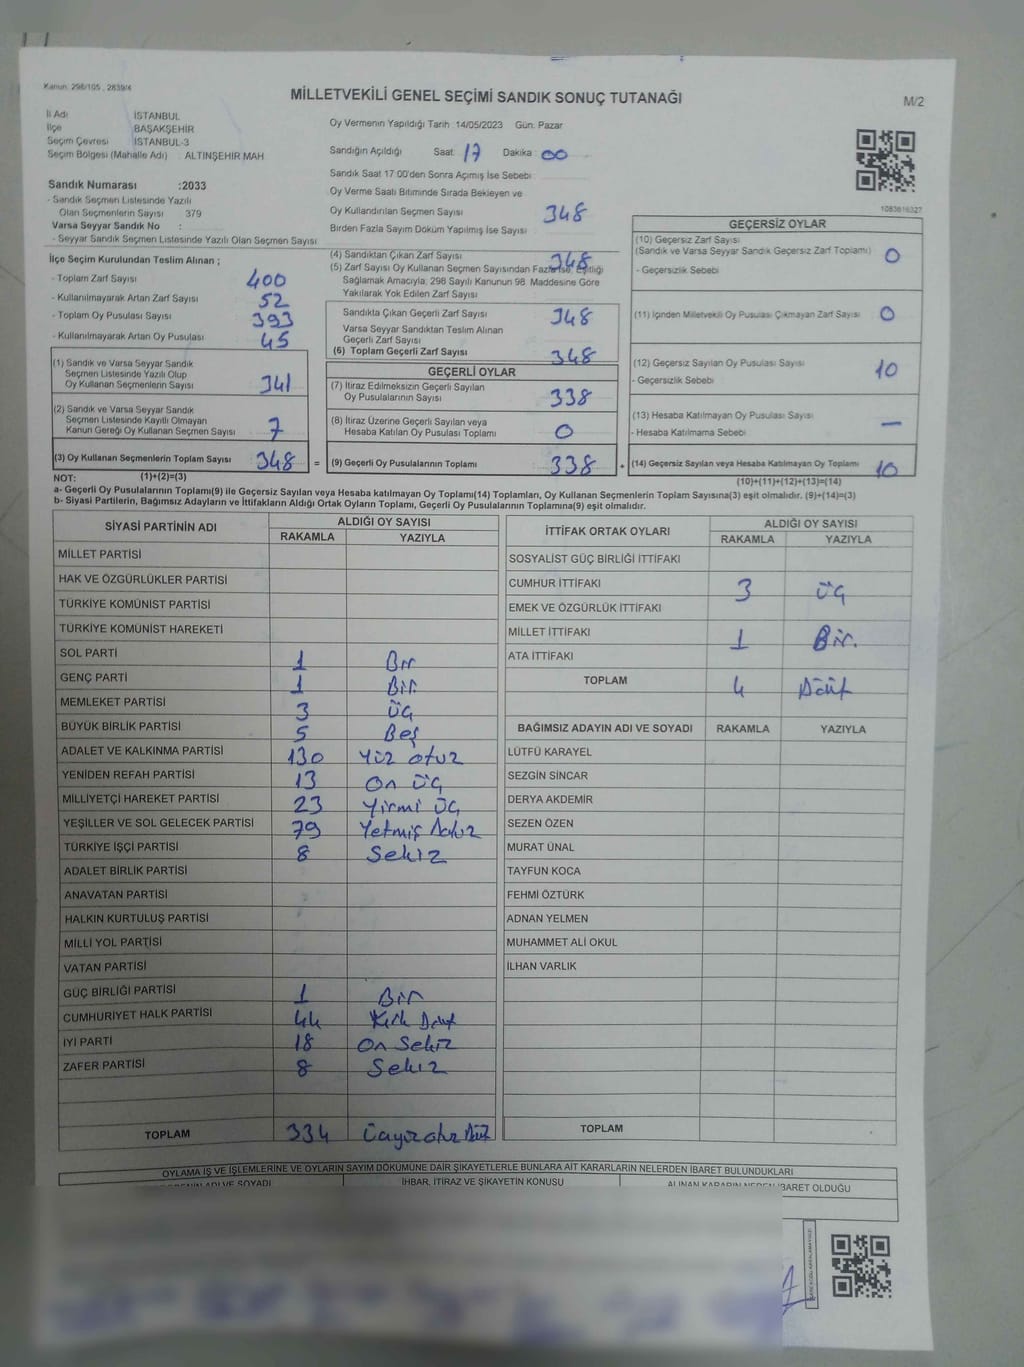 Kanun: 298/105, 2839/4
MİLLETVEKİLİ GENEL SEÇİMİ SANDIK SONUÇ TUTANAĞI
M/2
İl Adı İSTANBUL
İlçe BAŞAKŞEHİR
Seçim Çevresi İSTANBUL-3
Seçim Bölgesi (Mahalle Adı) ALTINŞEHİR MAH
Sandık Numarası :2033
- Sandık Seçmen Listesinde Yazılı
Olan Seçmenlerin Sayısı 379
Varsa Seyyar Sandık No :
- Seyyar Sandık Seçmen Listesinde Yazılı Olan Seçmen Sayısı
Oy Vermenin Yapıldığı Tarih 14/05/2023 Gün: Pazar
Sandığın Açıldığı Saat: 17 Dakika: 00
Sandık Saat 17 00'den Sonra Açımış İse Sebebi
Oy Verme Saati Bitiminde Sırada Bekleyen ve
Oy Kullandırılan Seçmen Sayısı 348
Birden Fazla Sayım Döküm Yapılmış İse Sayısı
1083616327
İlçe Seçim Kurulundan Teslim Alınan ;
- Toplam Zarf Sayısı 400
- Kullanılmayarak Artan Zarf Sayısı 52
- Toplam Oy Pusulası Sayısı 393
- Kullanılmayarak Artan Oy Pusulası 45
(1) Sandık ve Varsa Seyyar Sandık
Seçmen Listesinde Yazılı Olup
Oy Kullanan Seçmenlerin Sayısı 341
(2) Sandık ve Varsa Seyyar Sandık
Seçmen Listesinde Kayıtlı Olmayan
Kanun Gereği Oy Kullanan Seçmen Sayısı 7
(3) Oy Kullanan Seçmenlerin Toplam Sayısı 348 =
(1)+(2)=(3)
(4) Sandıktan Çıkan Zarf Sayısı 348
(5) Zarf Sayısı Oy Kullanan Seçmen Sayısından Fazla İse, Eşitliği
Sağlamak Amacıyla, 298 Sayılı Kanunun 98. Maddesine Göre
Yakılarak Yok Edilen Zarf Sayısı
Sandıkta Çıkan Geçerli Zarf Sayısı 348
Varsa Seyyar Sandıktan Teslim Alınan
Geçerli Zarf Sayısı
(6) Toplam Geçerli Zarf Sayısı 348
GEÇERLİ OYLAR
(7) İtiraz Edilmeksizin Geçerli Sayılan
Oy Pusulalarının Sayısı 338
(8) İtiraz Üzerine Geçerli Sayılan veya
Hesaba Katılan Oy Pusulası Toplamı 0
(9) Geçerli Oy Pusulalarının Toplamı 338 +
GEÇERSİZ OYLAR
(10) Geçersiz Zarf Sayısı
(Sandık ve Varsa Seyyar Sandık Geçersiz Zarf Toplamı) 0
- Geçersizlik Sebebi
(11) İçinden Milletvekili Oy Pusulası Çıkmayan Zarf Sayısı 0
(12) Geçersiz Sayılan Oy Pusulası Sayısı 10
- Geçersizlik Sebebi
(13) Hesaba Katılmayan Oy Pusulası Sayısı —
- Hesaba Katılmama Sebebi
(14) Geçersiz Sayılan veya Hesaba Katılmayan Oy Toplamı 10
(10)+(11)+(12)+(13)=(14)
NOT:
a- Geçerli Oy Pusulalarının Toplamı(9) ile Geçersiz Sayılan veya Hesaba katılmayan Oy Toplamı(14) Toplamları, Oy Kullanan Seçmenlerin Toplam Sayısına(3) eşit olmalıdır. (9)+(14)=(3)
b- Siyasi Partilerin, Bağımsız Adayların ve İttifakların Aldığı Ortak Oyların Toplamı, Geçerli Oy Pusulalarının Toplamına(9) eşit olmalıdır.
SİYASİ PARTİNİN ADI ALDIĞI OY SAYISI
RAKAMLA YAZIYLA
MİLLET PARTİSİ
HAK VE ÖZGÜRLÜKLER PARTİSİ
TÜRKİYE KOMÜNİST PARTİSİ
TÜRKİYE KOMÜNİST HAREKETİ
SOL PARTİ 1 Bir
GENÇ PARTİ 1 Bir
MEMLEKET PARTİSİ 3 Üç
BÜYÜK BİRLİK PARTİSİ 5 Beş
ADALET VE KALKINMA PARTİSİ 130 Yüz otuz
YENİDEN REFAH PARTİSİ 13 On Üç
MİLLİYETÇİ HAREKET PARTİSİ 23 Yirmi Üç
YEŞİLLER VE SOL GELECEK PARTİSİ 79 Yetmiş Dokuz
TÜRKİYE İŞÇİ PARTİSİ 8 Sekiz
ADALET BİRLİK PARTİSİ
ANAVATAN PARTİSİ
HALKIN KURTULUŞ PARTİSİ
MİLLİ YOL PARTİSİ
VATAN PARTİSİ
GÜÇ BİRLİĞİ PARTİSİ 1 Bir
CUMHURİYET HALK PARTİSİ 44 Kırk Dört
İYİ PARTİ 18 On Sekiz
ZAFER PARTİSİ 8 Sekiz
TOPLAM 334 Üçyüzotuz Dört
İTTİFAK ORTAK OYLARI ALDIĞI OY SAYISI
RAKAMLA YAZIYLA
SOSYALİST GÜÇ BİRLİĞİ İTTİFAKI
CUMHUR İTTİFAKI 3 Üç
EMEK VE ÖZGÜRLÜK İTTİFAKI
MİLLET İTTİFAKI 1 Bir.
ATA İTTİFAKI
TOPLAM 4 Dört
BAĞIMSIZ ADAYIN ADI VE SOYADI RAKAMLA YAZIYLA
LÜTFÜ KARAYEL
SEZGİN SİNCAR
DERYA AKDEMİR
SEZEN ÖZEN
MURAT ÜNAL
TAYFUN KOCA
FEHMİ ÖZTÜRK
ADNAN YELMEN
MUHAMMET ALİ OKUL
İLHAN VARLIK
TOPLAM
OYLAMA İŞ VE İŞLEMLERİNE VE OYLARIN SAYIM DÖKÜMÜNE DAİR ŞİKAYETLERLE BUNLARA AİT KARARLARIN NELERDEN İBARET BULUNDUKLARI
ADI VE SOYADI İHBAR, İTİRAZ VE ŞİKAYETİN KONUSU ALINAN KARARIN NEDEN İBARET OLDUĞU